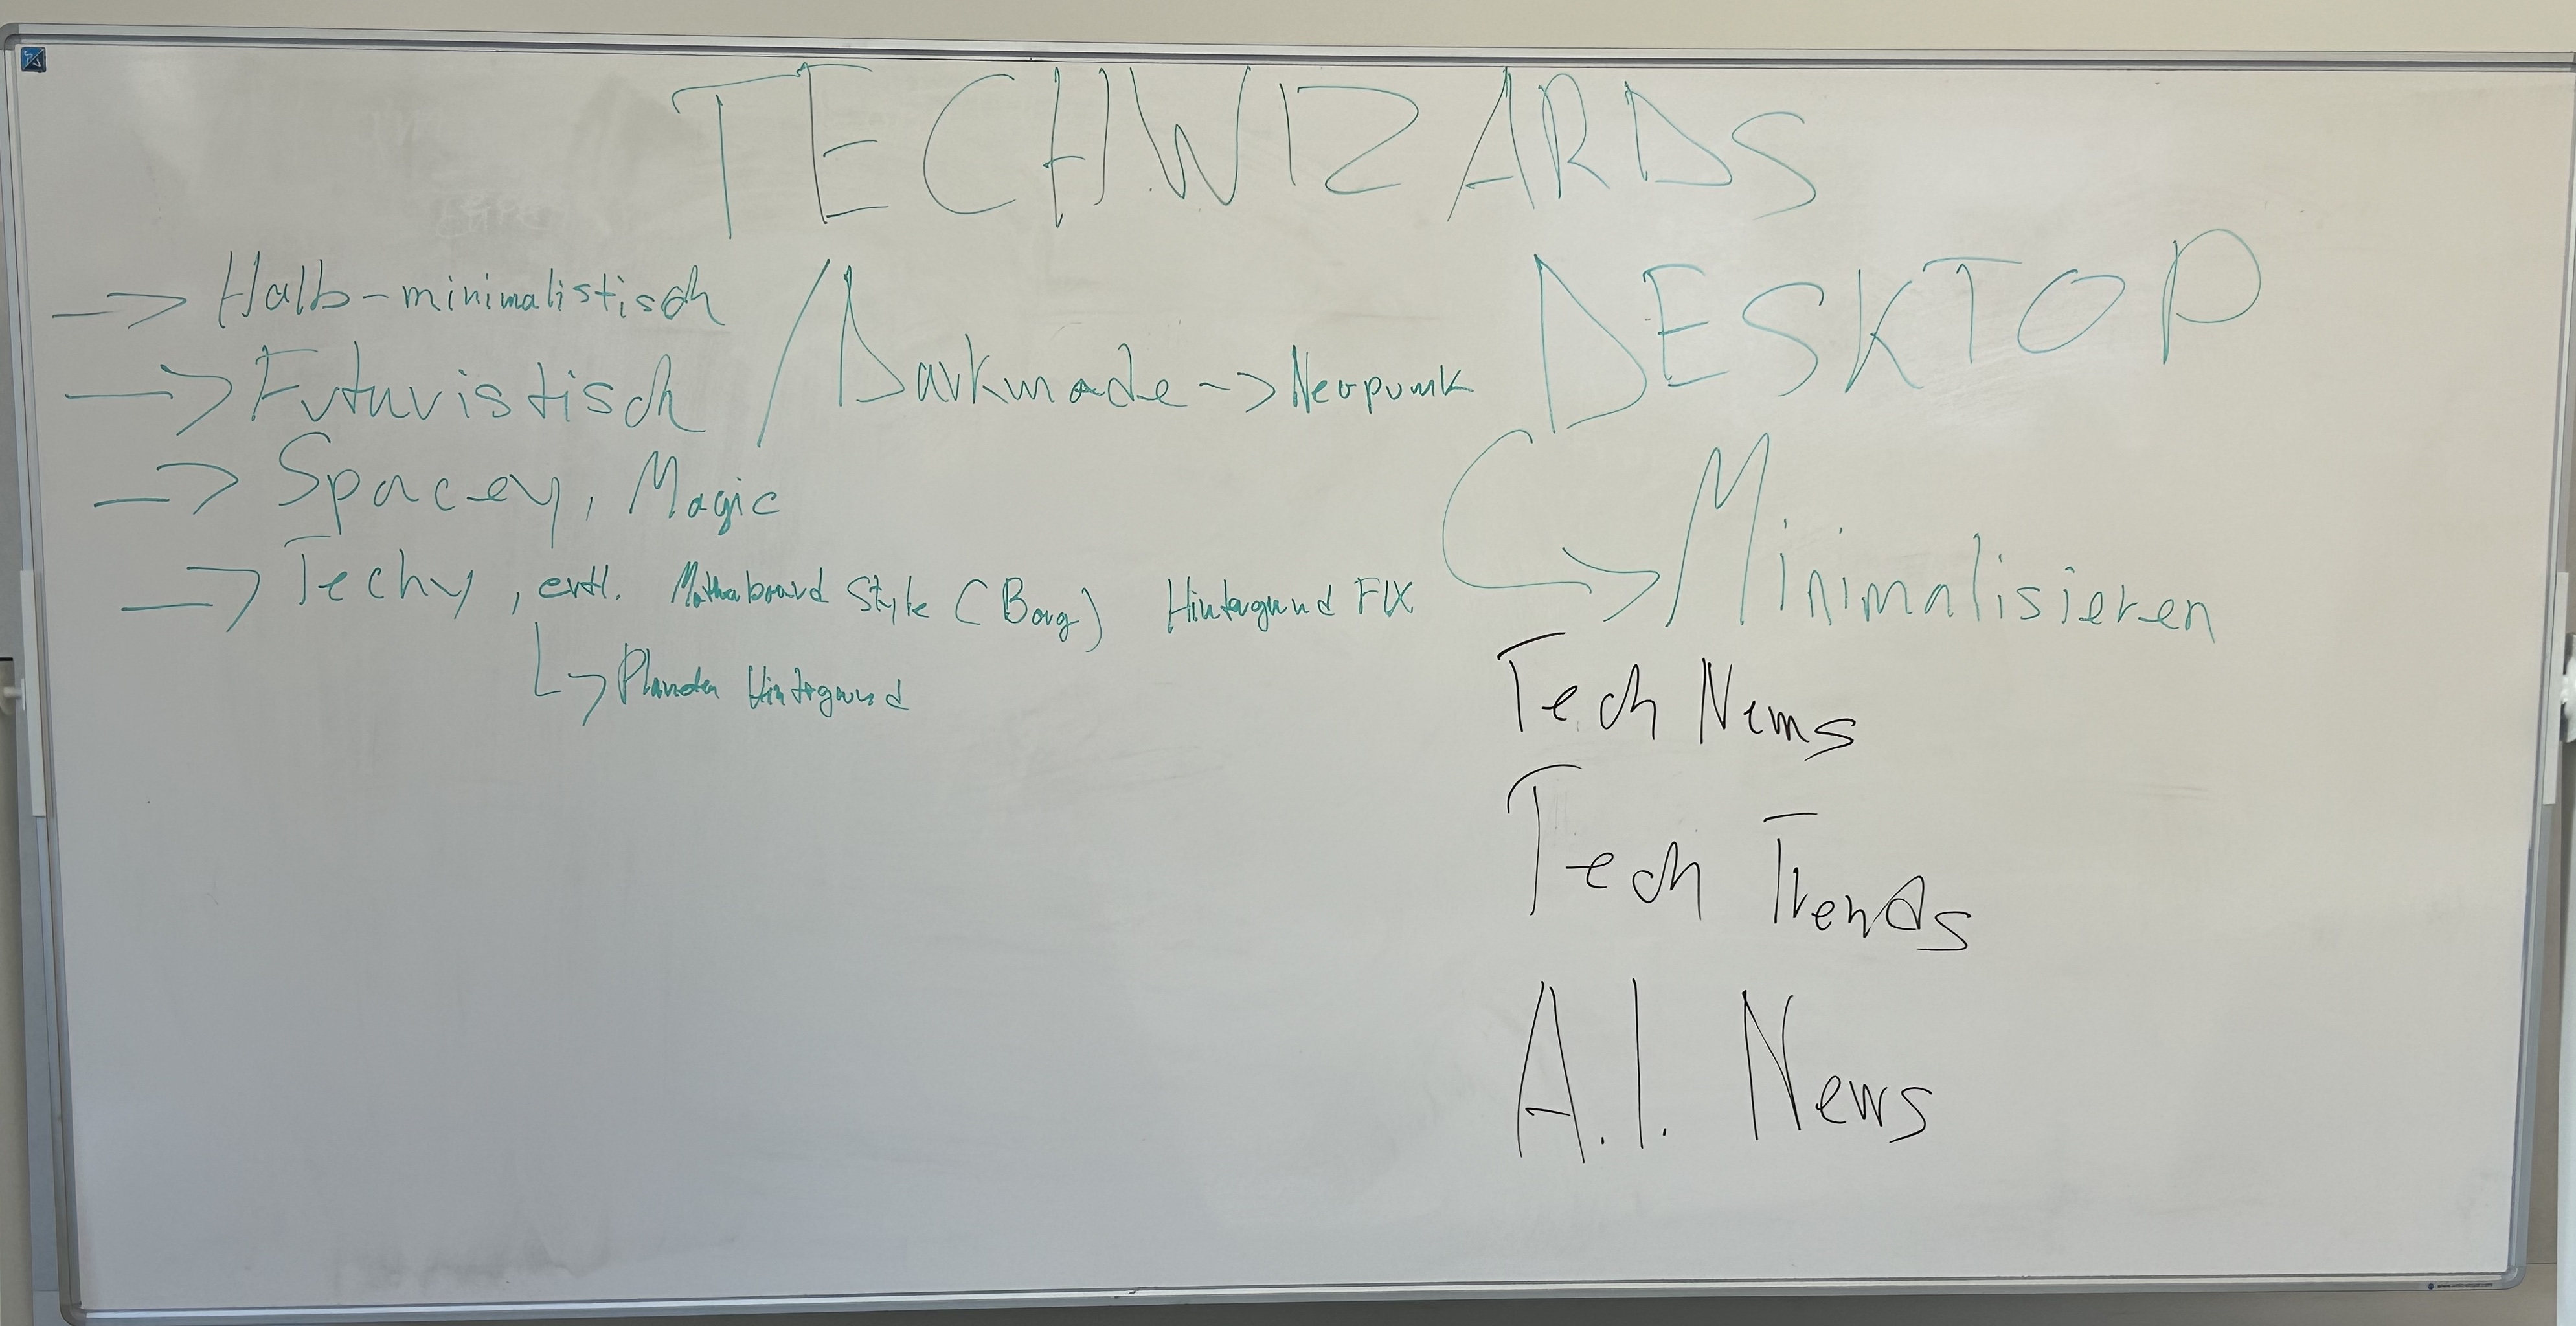 TECHWIZARDS
→ Halb-minimalistisch
→ Futuristisch / Darkmode -> Neopunk
→ Spacey, Magic
→ Techy, evtl. Motherboard Style (Borg) Hintergrund FIX
↳ Planeten Hintergrund
DESKTOP
↳ Minimalisieren
Tech News
Tech Trends
A.I. News